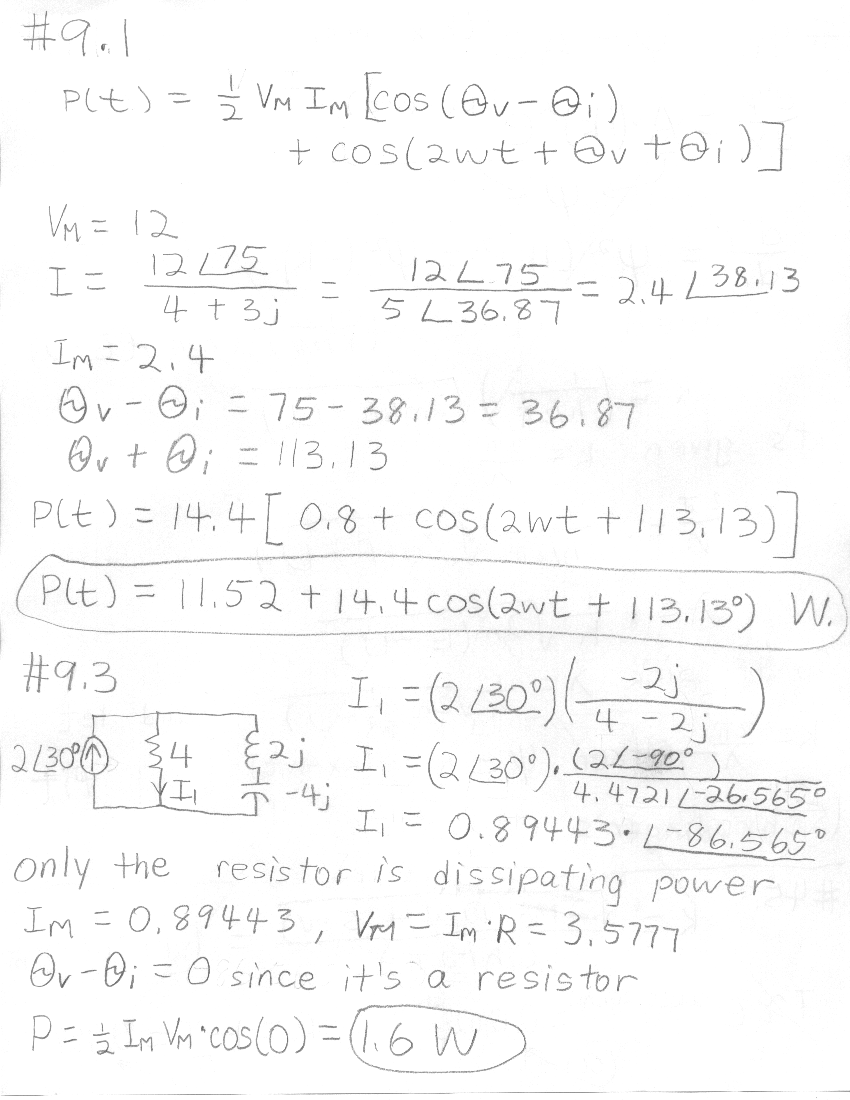 #9.1
P(t) = ½ V_M I_M [cos(θv − θi)
+ cos(2wt + θv + θi)]
V_M = 12
I = 12∠75 / (4 + 3j) = 12∠75 / 5∠36.87 = 2.4∠38.13
I_M = 2.4
θv − θi = 75 − 38.13 = 36.87
θv + θi = 113.13
P(t) = 14.4[ 0.8 + cos(2wt + 113.13)]
P(t) = 11.52 + 14.4 cos(2wt + 113.13°) W.
#9.3
2∠30° 4 I₁ 2j -4j
I₁ = (2∠30°)(−2j / (4 − 2j))
I₁ = (2∠30°)·(2∠−90°) / 4.4721∠−26.565°
I₁ = 0.89443·∠−86.565°
only the resistor is dissipating power
I_M = 0.89443, V_M = I_M·R = 3.5777
θv − θi = 0 since it's a resistor
P = ½ I_M V_M·cos(0) = 1.6 W